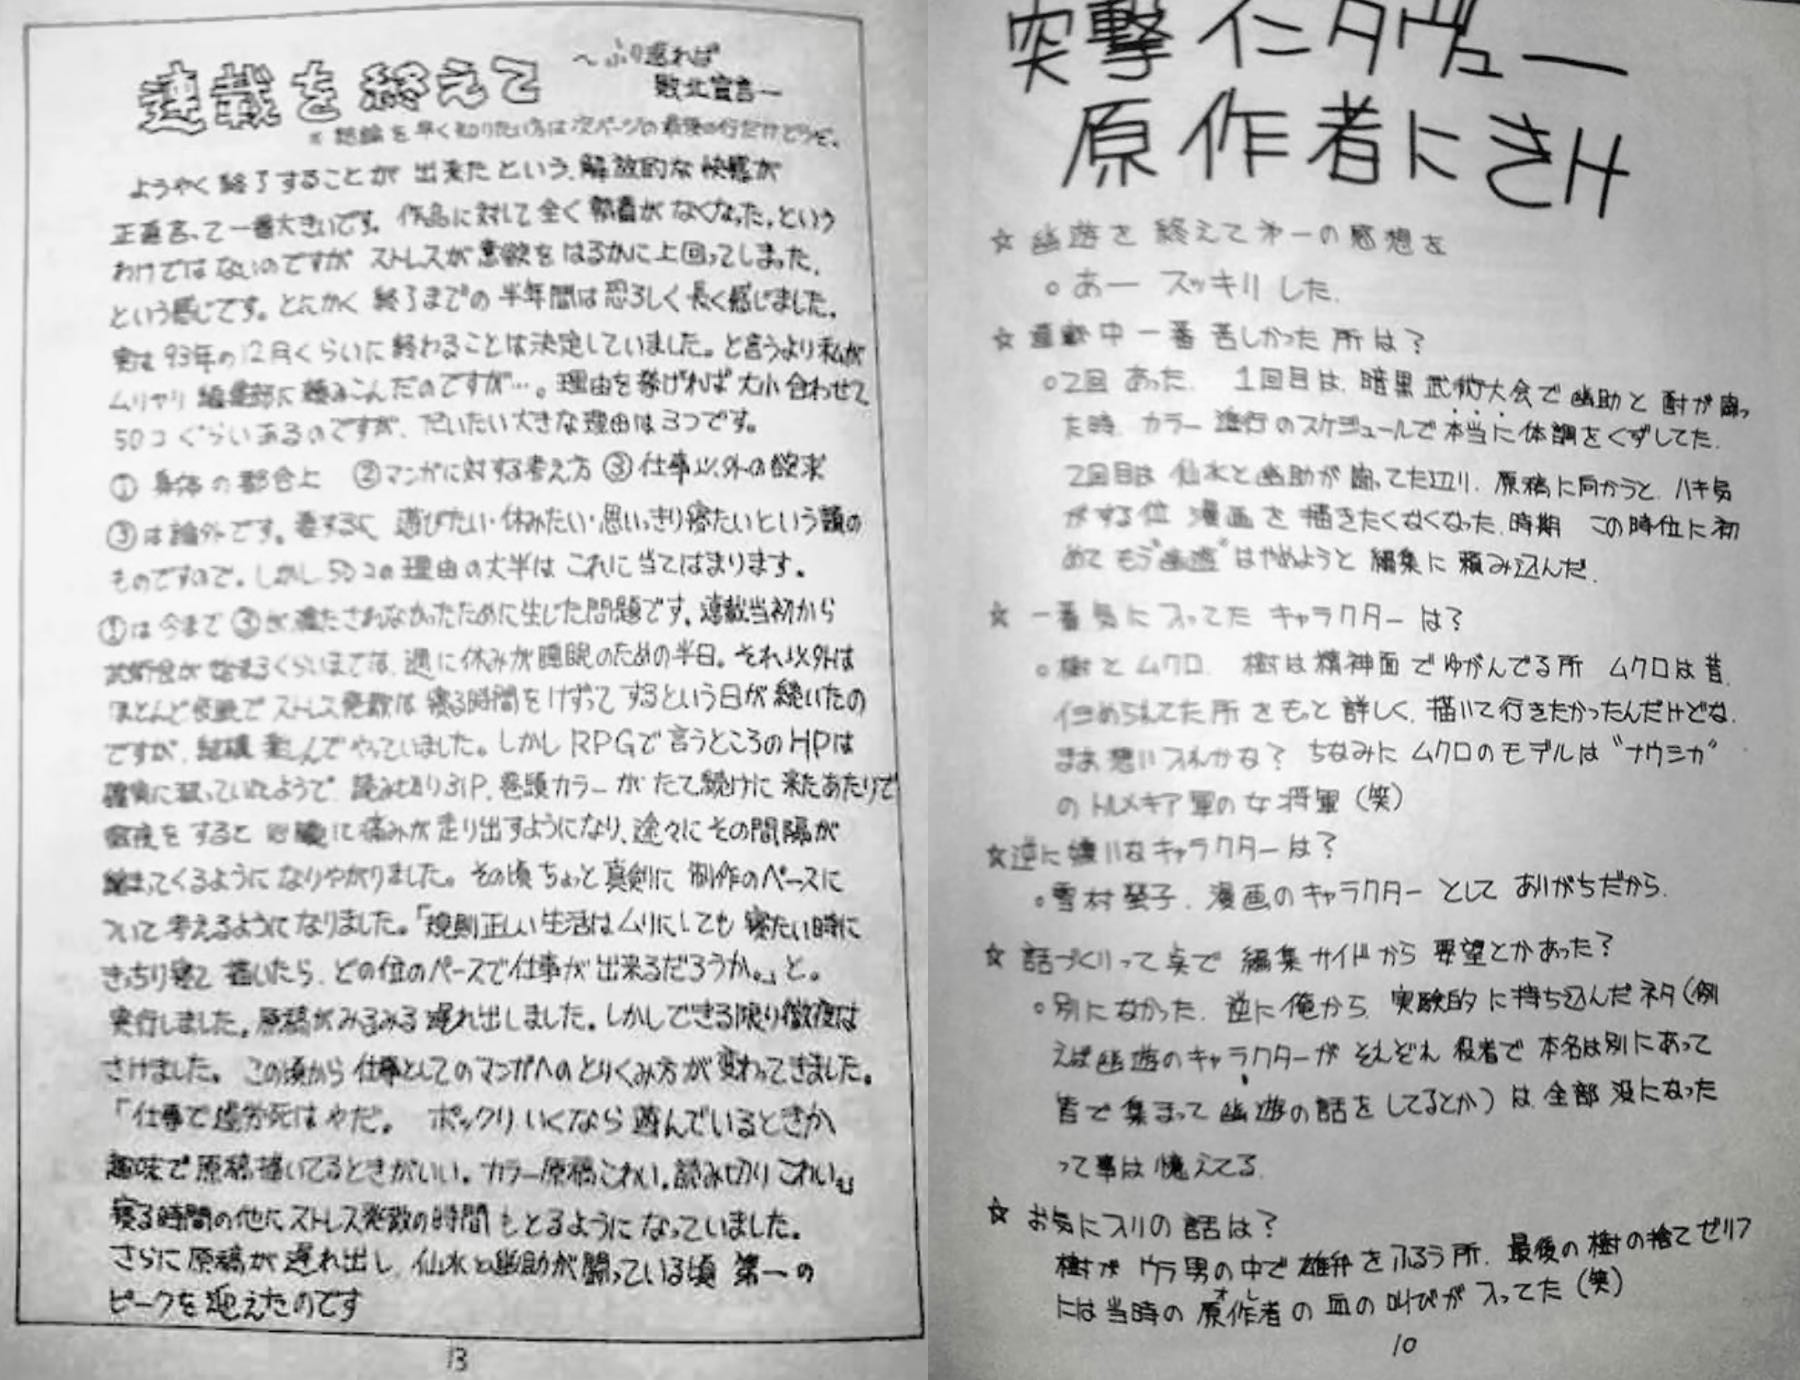 連載を終えて
～ふり返れば
敗北宣言―
※結論を早く知りたい方は次ページの最後の行だけどうぞ。
ようやく終了することが出来たという、解放的な快感が
正直言って一番大きいです。作品に対して全く執着がなくなった、という
わけではないのですがストレスが意欲をはるかに上回ってしまった、
という感じです。とにかく終了までの半年間は恐ろしく長く感じました。
実は93年の12月くらいに終わることは決定していました。と言うより私が
ムリヤリ編集部に頼みこんだのですが…。理由を挙げれば大小合わせて
50コぐらいあるのですが、だいたい大きな理由は3つです。
①身体の都合上 ②マンガに対する考え方 ③仕事以外の欲求
③は論外です。要するに遊びたい・休みたい・思いっきり寝たいという類の
ものですので。しかし50コの理由の大半はこれに当てはまります。
①は今まで③が満たされなかったために生じた問題です。連載当初から
武術会が始まるくらいまでは、週に休みが睡眠のための半日。それ以外は
ほとんど徹夜でストレス発散は寝る時間をけずってするという日が続いたの
ですが、結構楽しんでやっていました。しかしRPGで言うところのHPは
確実に減っていたようで、読み切り31P、巻頭カラーがたて続けに来たあたりで
徹夜をすると心臓に痛みが走り出すようになり、途々にその間隔が
縮まってくるようになりやがりました。その頃ちょっと真剣に制作のペースに
ついて考えるようになりました。「規則正しい生活はムリにしても寝たい時に
きっちり寝て描いたら、どの位のペースで仕事が出来るだろうか。」と。
実行しました。原稿がみるみる遅れ出しました。しかしできる限り徹夜は
さけました。この頃から仕事としてのマンガへのとりくみ方が変わってきました。
「仕事で過労死はやだ。 ポックリいくなら遊んでいるときか
趣味で原稿描いてるときがいい。カラー原稿こわい。読み切りこわい。」
寝る時間の他にストレス発散の時間もとるようになっていました。
さらに原稿が遅れ出し、仙水と幽助が闘っている頃第一の
ピークを迎えたのです
13
突撃インタヴュー
原作者にきけ
☆幽遊を終えて第一の感想を
○あー スッキリした。
☆連載中一番苦しかった所は?
○2回あった。1回目は、暗黒武術大会で幽助と酎が闘っ
た時、カラー進行のスケジュールで本当に体調をくずしてた。
2回目は仙水と幽助が闘ってた辺り、原稿に向かうと、ハキ気
がする位漫画を描きたくなくなった時期 この時位に初
めてもう"幽遊"はやめようと編集に頼み込んだ。
☆一番気に入ってたキャラクターは?
○樹とムクロ。樹は精神面でゆがんでる所 ムクロは昔、
イヂめられてた所をもっと詳しく、描いて行きたかったんだけどな、
まあ思い入れかな? ちなみにムクロのモデルは"ナウシカ"
のトルメキア軍の女将軍(笑)
☆逆に嫌いなキャラクターは?
○雪村螢子、漫画のキャラクターとしてありがちだから。
☆話づくりって点で編集サイドから要望とかあった?
○別になかった。逆に俺から、実験的に持ち込んだネタ(例
えば幽遊のキャラクターがそれぞれ役者で本名は別にあって
皆で集まって幽遊の話をしてるとか)は全部没になった
って事は憶えてる。
☆お気に入りの話は?
樹がウラ男の中で雄弁をふるう所、最後の樹の捨てゼリフ
には当時の原作者(オレ)の血の叫びが入ってた(笑)
10